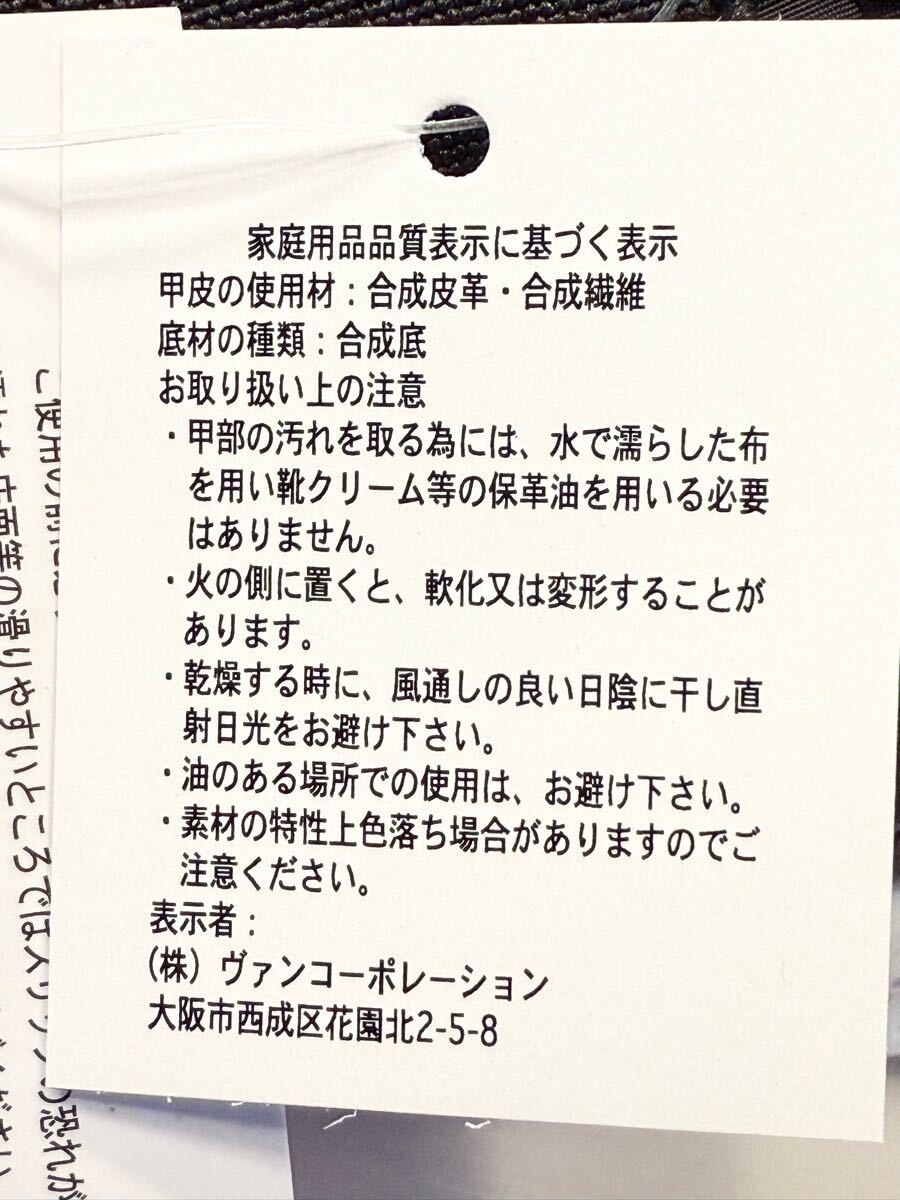 家庭用品品質表示に基づく表示
甲皮の使用材：合成皮革・合成繊維
底材の種類：合成底
お取り扱い上の注意
・甲部の汚れを取る為には、水で濡らした布
を用い靴クリーム等の保革油を用いる必要
はありません。
・火の側に置くと、軟化又は変形することが
あります。
・乾燥する時に、風通しの良い日陰に干し直
射日光をお避け下さい。
・油のある場所での使用は、お避け下さい。
・素材の特性上色落ち場合がありますのでご
注意ください。
表示者：
(株) ヴァンコーポレーション
大阪市西成区花園北2-5-8
面等の滑りやすいところでは
恐れが